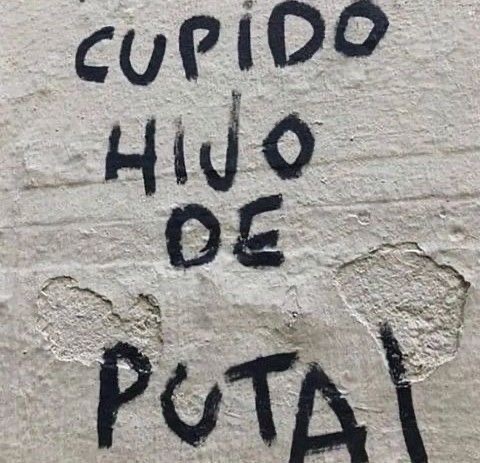 CUPIDO
HIJO
DE
PUTA!